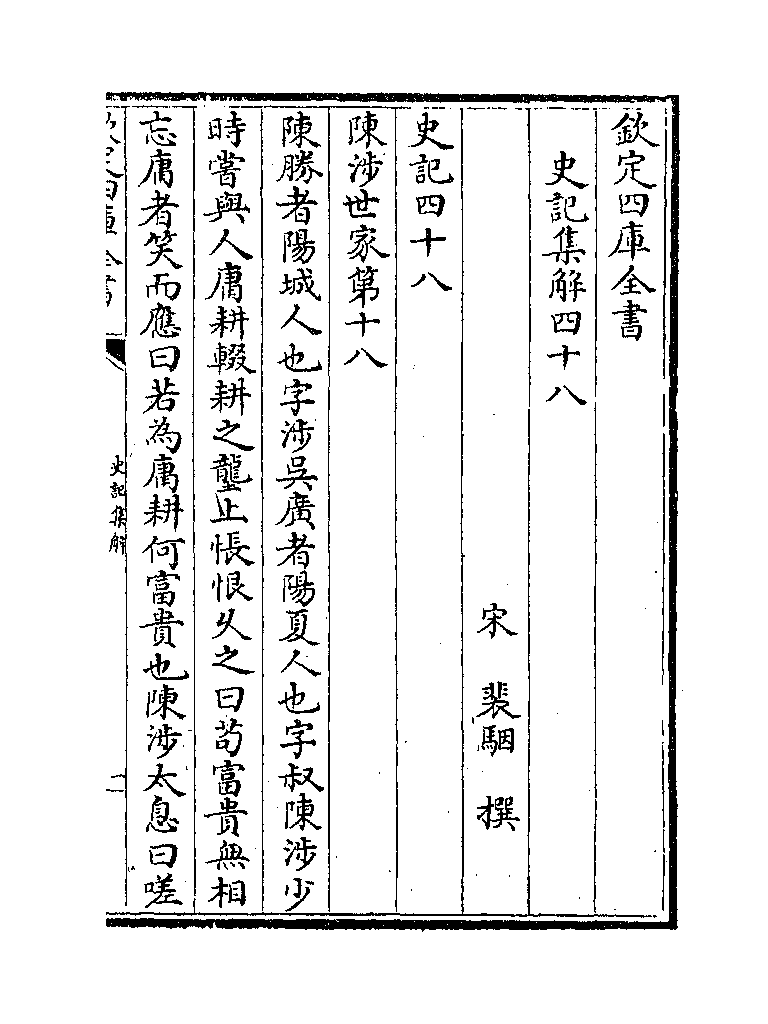 欽定四庫全書
史記集解四十八
宋　裴駰　撰
史記四十八
陳涉世家第十八
陳勝者陽城人也字涉吳廣者陽夏人也字叔陳涉少
時嘗與人庸耕輟耕之壟上悵恨久之曰茍富貴無相
忘庸者笑而應曰若為庸耕何富貴也陳涉太息曰嗟
欽定四庫全書
史記集解